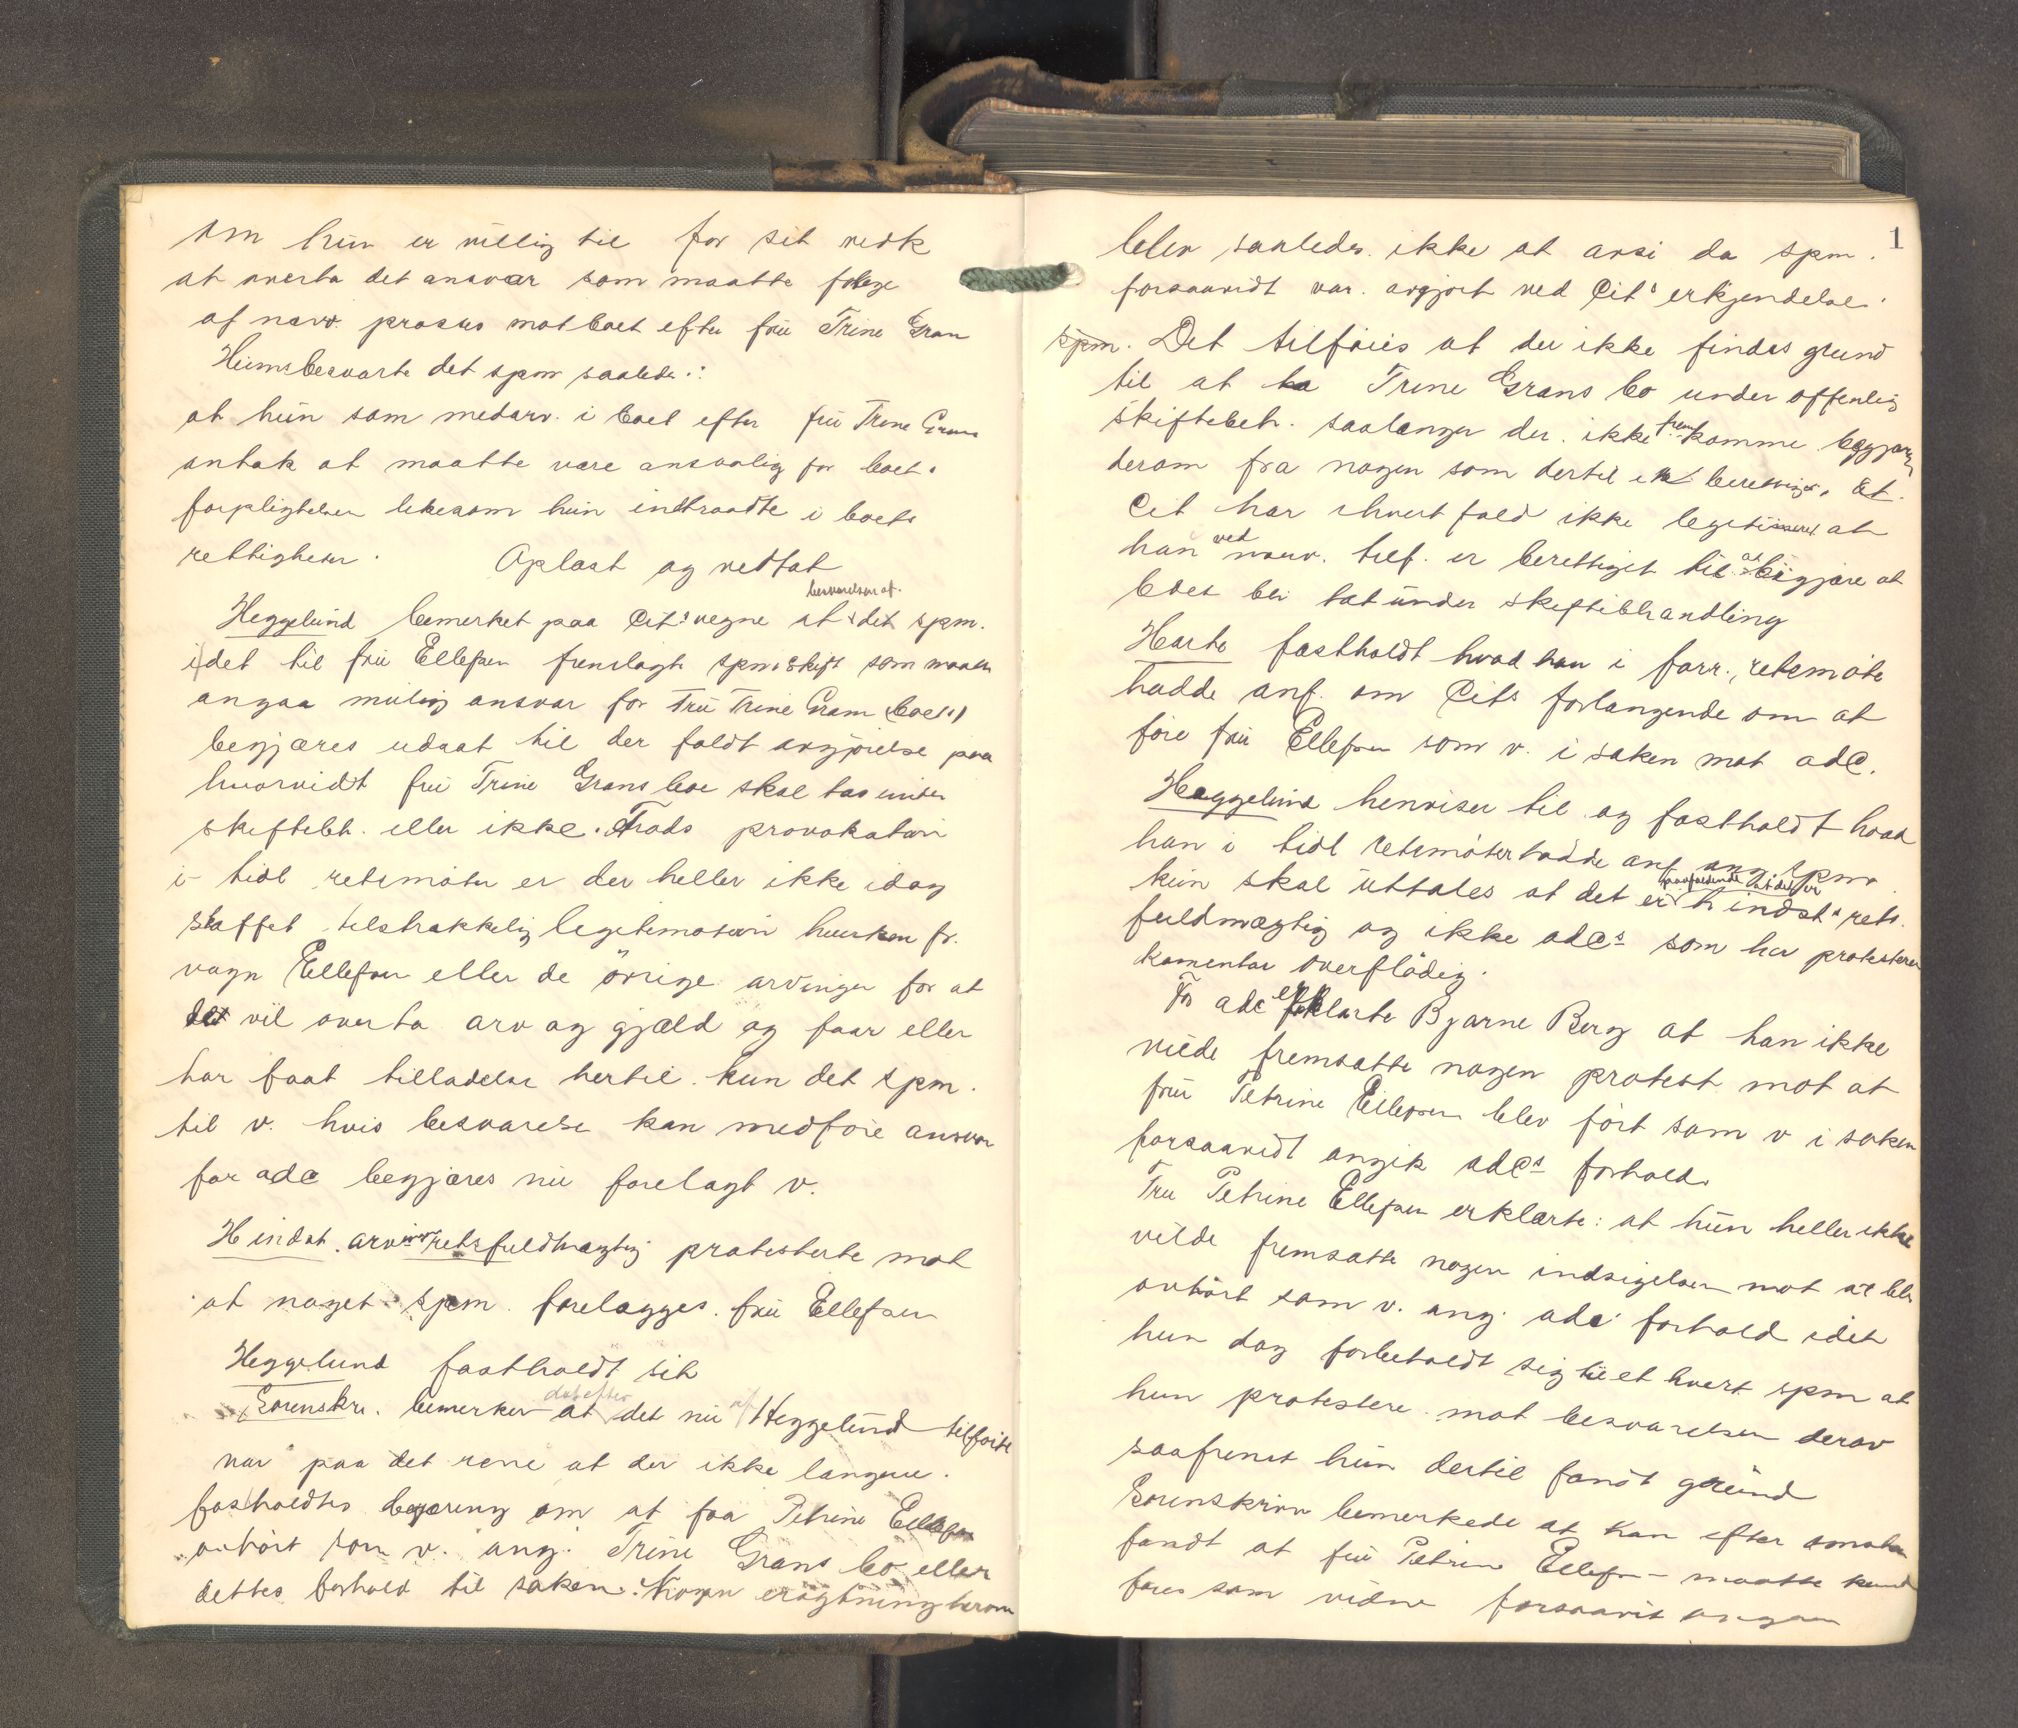 om hun er villig til for sit vedk
at overta det ansvar som maatte følge
af nærv. proses mot boet efter fru Trine Gran
Hun besvarte det spm saaledes:
at hun som medarv. i boet efter fru Trine Gran
antok at maatte være ansvarlig for boets
forpligtelser likesom hun indtraadte i boets
rettigheter. Oplæst og vedtat
Heggelund bemerket paa Cits vegne at besvarelsen af det spm.
i det til fru Ellefsen fremlagte spm.skift som maatte
angaa mulig ansvar for fru Trine Gran boets
begjæres udsat til der faldt avgjørelse paa
hvorvidt fru Trine Grans bo skal tas under
skiftebeh. eller ikke. Trods provokation
i tidl retsmøter er der heller ikke idag
skaffet tilstrækkelig legitimation hverken fr.
vagn Ellefsen eller de øvrige arvinger for at
det vil overta arv og gjæld og faar eller
har faat tilladelse hertil. Kun det spm.
til v. hvis besvarelse kan medføre ansvar
for adc begjæres nu forelagt v.
H indst. arvings retsfuldmægtig protesterte mot
at noget spm. forelægges fru Ellefsen
Heggelund fastholdt sit
Sorenskr. bemerker at derefter det nu af Heggelund tilføite
var paa det rene at der ikke længere
fastholdtes begjæring om at faa Petrine Ellefsen
avhørt som v. ang. Trine Grans bo eller
dettes forhold til saken. Nogen eragtning herom
1
blev saaledes ikke at avsi da spm.
forsaavidt var avgjort ved Cits erkjendelse
spm. Det tilføies at der ikke findes grund
til at ta Trine Grans bo under offentlig
skiftebeh. saalænge der ikke fremkomme begjæring
derom fra nogen som dertil er berettiget. At
Cit har ihvertfald ikke legitimeret at
han ved nærv. tilf. er berettiget til at begjære at
boet bli tat under skiftebhandling
Harte fastholdt hvad han i forr. retsmøte
hadde anf. om Cits forlangende om at
føre fru Ellefsen som v. i saken mot adC.
Heggelund henviser til og fastholdt hvad
han i tidl retsmøter hadde anf ang. spm.
kun skal uttales at det er paafaldende at det er H indst. rets
fuldmægtig og ikke adCs som har protesteret
Komentar overflødig.
For adc erklærte Bjarne Berg at han ikke
vilde fremsætte nogen protest mot at
fru Petrine Ellefsen blev ført som v i saken
forsaavidt angik adCs forhold.
Fru Petrine Ellefsen erklærte: at hun heller ikke
vilde fremsætte nogen indsigelser mot at bli
avhørt som v. ang. adc forhold idet
hun dog forbeholdt sig til et hvert spm at
hun protestere mot besvarelsen derav
saafremt hun dertil fandt grund
Sorenskriv bemerkede at han efter omst.
fandt at fru Petrine Ellefsen maatte kund
føres som vidne forsaavit angaar